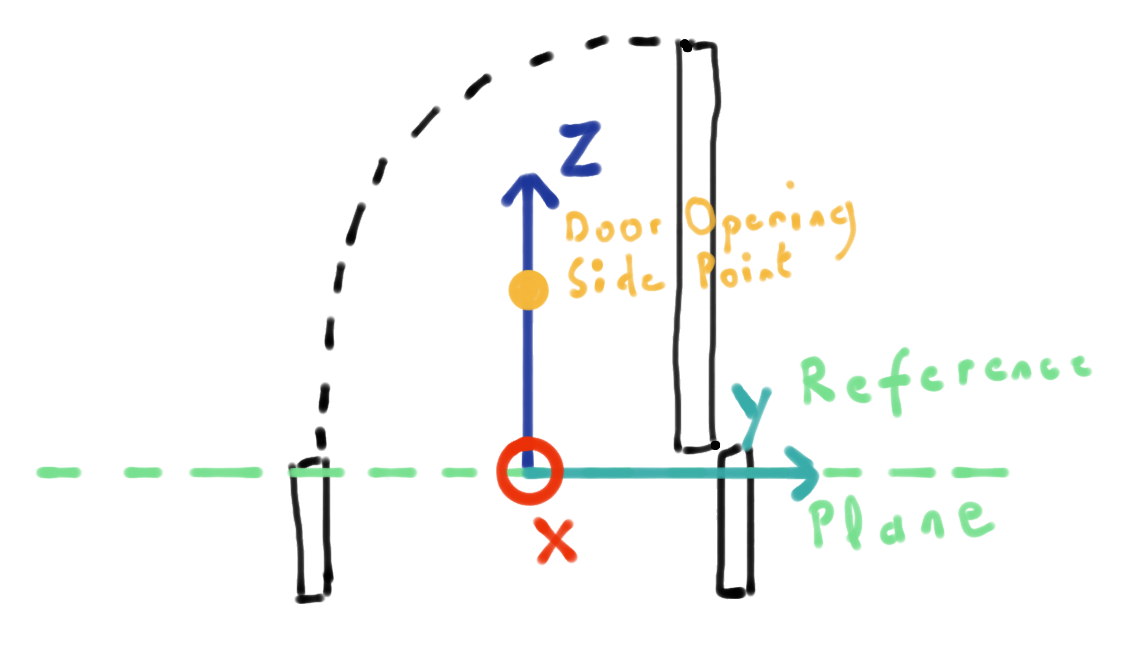 Z
Door Opening
Side Point
Reference
Y
Plane
X